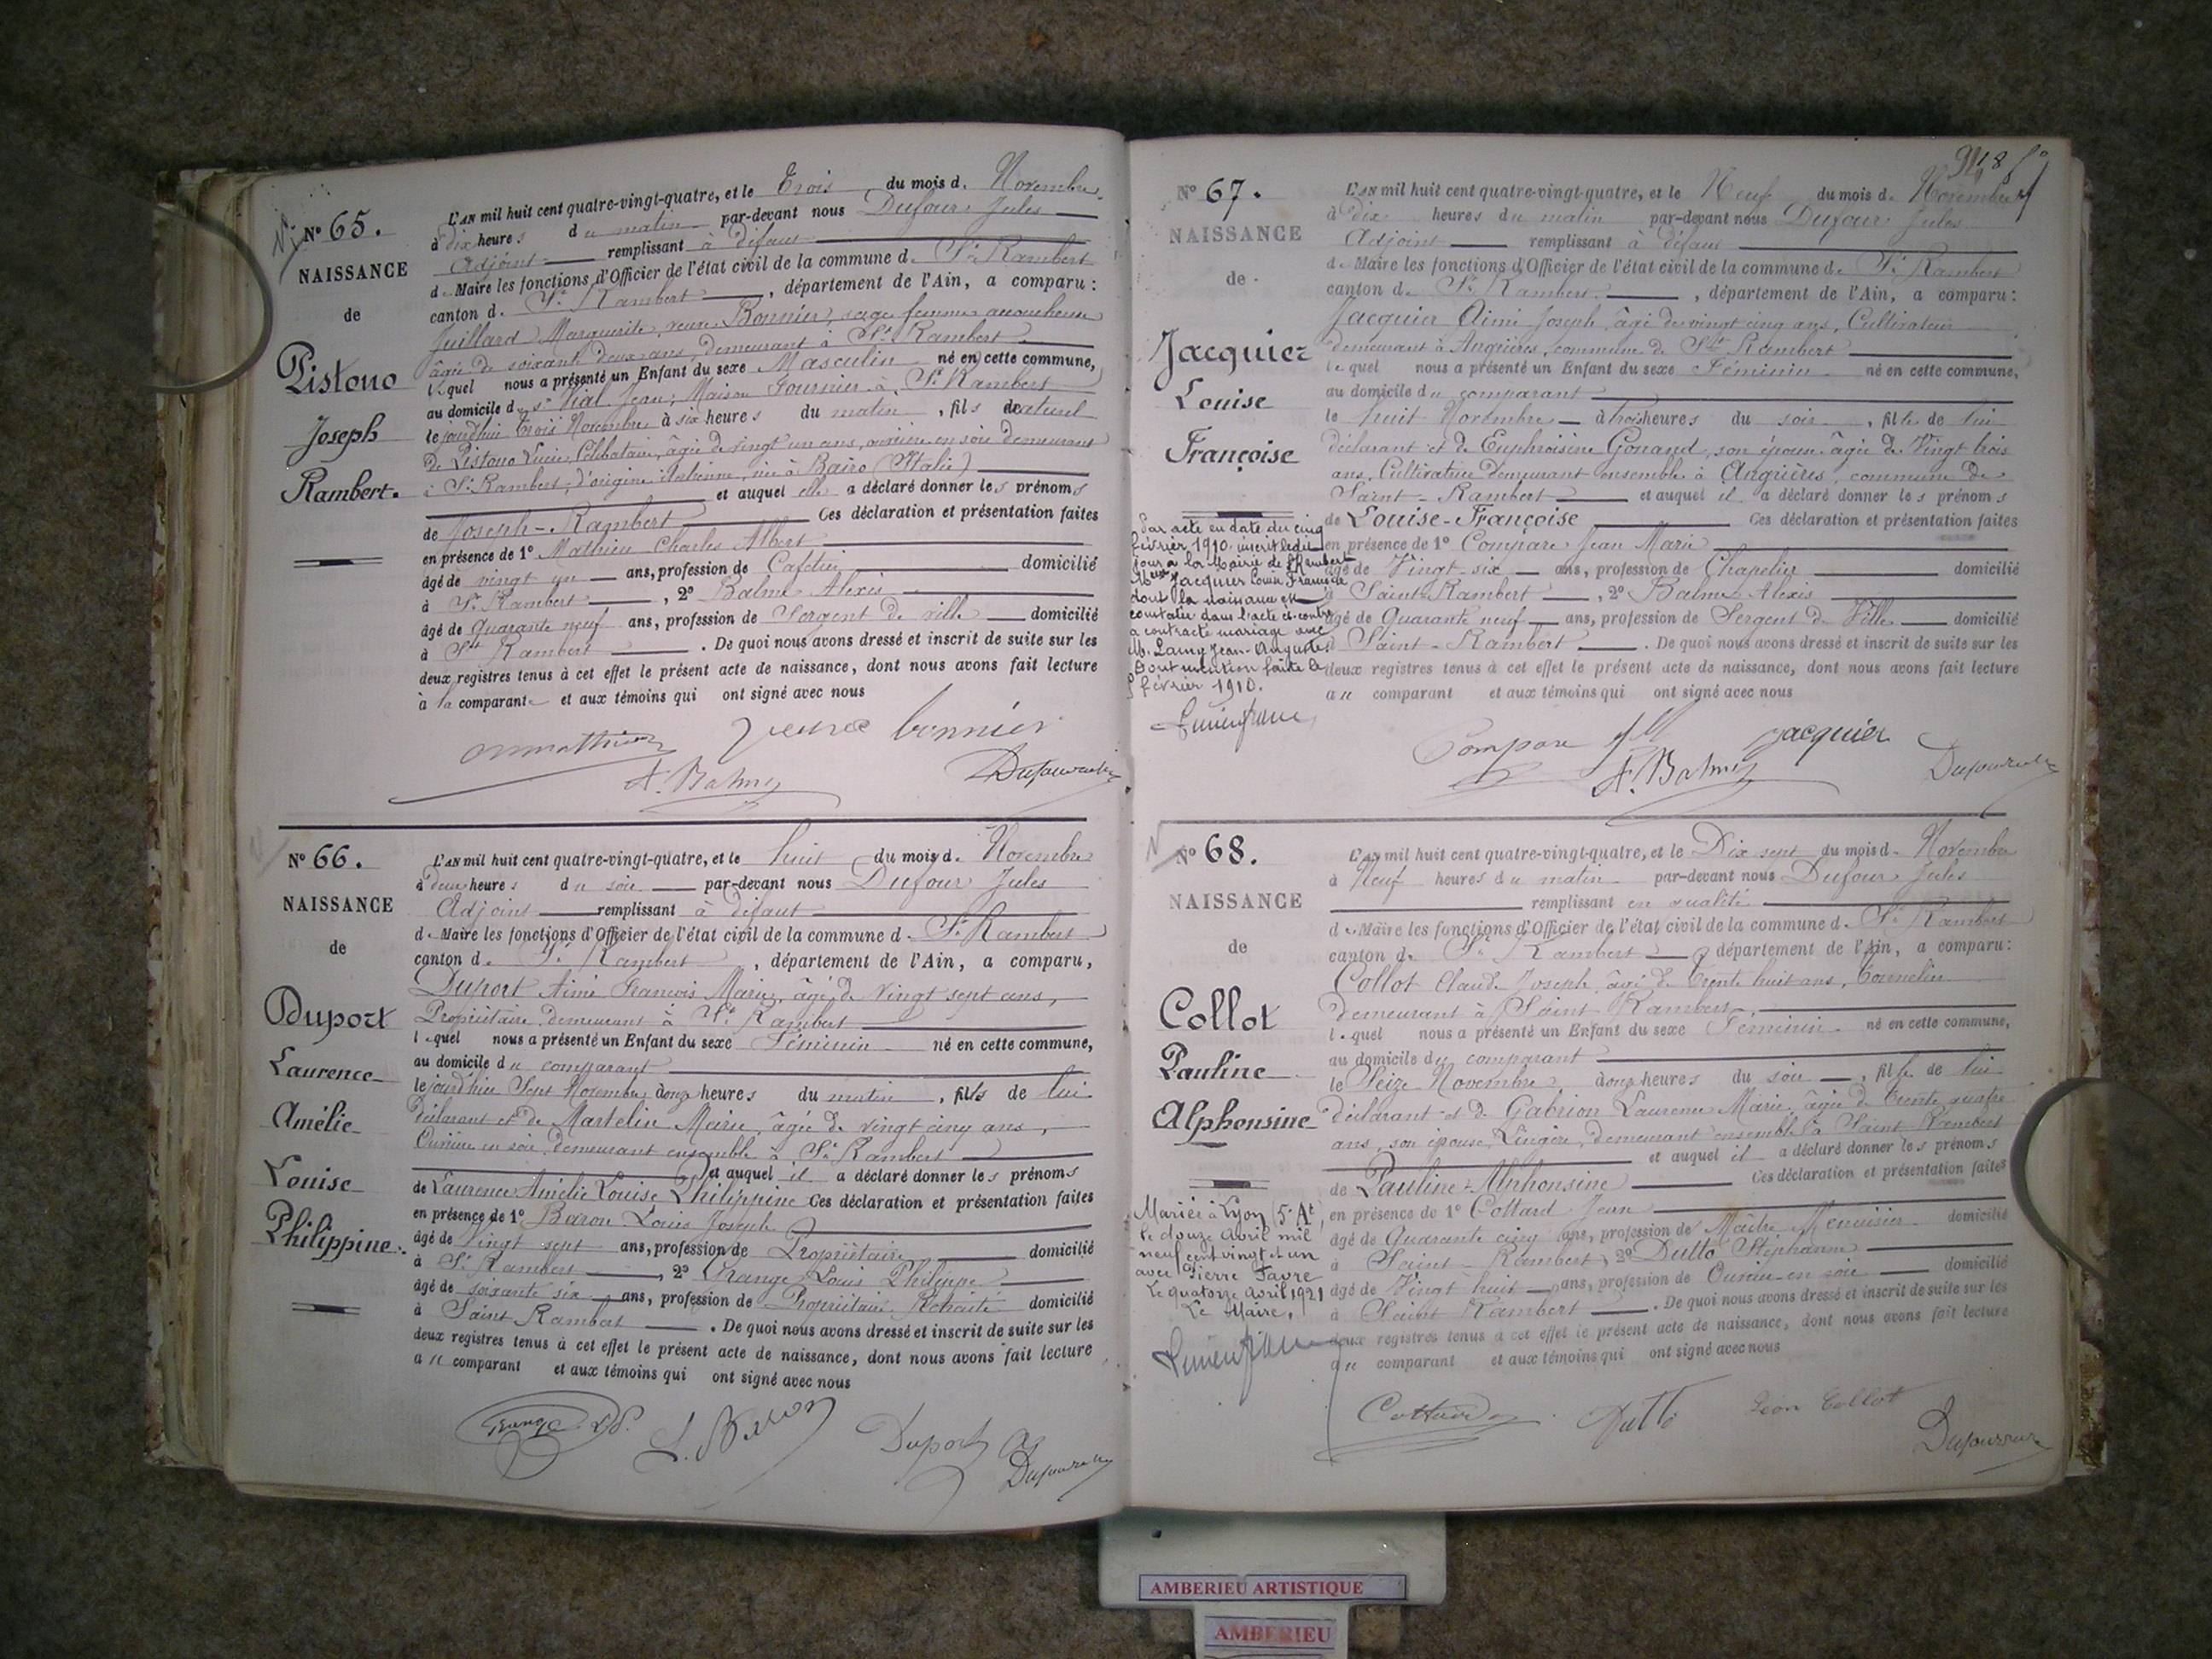 N° 65.
NAISSANCE
de
Pistono
Joseph
Rambert.
L'AN mil huit cent quatre-vingt-quatre, et le Trois du mois d. Novembre
à dix heures du matin par-devant nous Dufour Jules
Adjoint remplissant à défaut
de Maire les fonctions d'Officier de l'état civil de la commune d. St Rambert
canton d. St Rambert, département de l'Ain, a comparu:
Juillard Marguerite, veuve Bonnier, sage femme accoucheuse
âgée de soixante deux ans, demeurant à St Rambert
lequel nous a présenté un Enfant du sexe Masculin né en cette commune,
au domicile du sr Vial Jean, Maison Fournier à St Rambert
le jourd'hui Trois Novembre à six heures du matin, fils naturel
de Pistono Lucie, Célibataire, âgée de vingt un ans, ouvrière en soie demeurant
à St Rambert, d'origine Italienne, née à Bairo (Italie)
et auquel elle a déclaré donner les prénoms
de Joseph-Rambert Ces déclaration et présentation faites
en présence de 1° Mathieu Charles Albert
âgé de vingt un ans, profession de Cafetier domicilié
à St Rambert, 2° Balme Alexis
âgé de quarante neuf ans, profession de Sergent de ville domicilié
à St Rambert. De quoi nous avons dressé et inscrit de suite sur les
deux registres tenus à cet effet le présent acte de naissance, dont nous avons fait lecture
à la comparante et aux témoins qui ont signé avec nous
veuve bonnier
A. Balme
N° 66.
NAISSANCE
de
Duport
Laurence
Amélie
Louise
Philippine.
L'AN mil huit cent quatre-vingt-quatre, et le huit du mois d. Novembre
à deux heures du soir par-devant nous Dufour Jules
Adjoint remplissant à défaut
de Maire les fonctions d'Officier de l'état civil de la commune d. St Rambert
canton d. St Rambert, département de l'Ain, a comparu,
Duport Aimé François Marie, âgé de Vingt sept ans,
Propriétaire demeurant à St Rambert
lequel nous a présenté un Enfant du sexe Féminin né en cette commune,
au domicile du comparant
le jourd'hui Sept Novembre à onze heures du matin, fille de lui
déclarant et de Martelin Marie, âgée de vingt cinq ans,
Ouvrière en soie, demeurant ensemble à St Rambert
et auquel il a déclaré donner les prénoms
de Laurence Amélie Louise Philippine Ces déclaration et présentation faites
en présence de 1° Baron Louis Joseph
âgé de Vingt sept ans, profession de Propriétaire domicilié
à St Rambert, 2° Grange Louis Philippe
âgé de soixante six ans, profession de Propriétaire Retraité domicilié
à Saint Rambert. De quoi nous avons dressé et inscrit de suite sur les
deux registres tenus à cet effet le présent acte de naissance, dont nous avons fait lecture
au comparant et aux témoins qui ont signé avec nous
L. Baron
Duport
N° 67.
NAISSANCE
de
Jacquier
Louise
Françoise
Par acte en date du cinq
février 1910 inscrit ledit
jour à la Mairie de St Rambert
Jacquier Louise Françoise
dont la naissance est
constatée dans l'acte ci-contre
a contracté mariage avec
M. Lamy Jean-Auguste
Dont mention faite le
février 1910.
L'AN mil huit cent quatre-vingt-quatre, et le Neuf du mois d. Novembre
à dix heures du matin par-devant nous Dufour Jules
Adjoint remplissant à défaut
de Maire les fonctions d'Officier de l'état civil de la commune de St Rambert
canton d. St Rambert, département de l'Ain, a comparu:
Jacquier Aimé Joseph, âgé de vingt cinq ans, Cultivateur
demeurant à Angrières, commune de St Rambert
lequel nous a présenté un Enfant du sexe Féminin né en cette commune,
au domicile du comparant
le huit Novembre à trois heures du soir, fille de lui
déclarant et de Euphroisine Gonand, son épouse âgée de Vingt trois
ans, Cultivatrice demeurant ensemble à Angrières, commune de
Saint-Rambert et auquel il a déclaré donner les prénoms
de Louise-Françoise Ces déclaration et présentation faites
en présence de 1° Compare Jean Marie
âgé de Vingt-six ans, profession de Chapelier domicilié
à Saint-Rambert, 2° Balme Alexis
âgé de Quarante neuf ans, profession de Sergent de Ville domicilié
à Saint-Rambert. De quoi nous avons dressé et inscrit de suite sur les
deux registres tenus à cet effet le présent acte de naissance, dont nous avons fait lecture
au comparant et aux témoins qui ont signé avec nous
Compare
Jacquier
A. Balme
N° 68.
NAISSANCE
de
Collot
Pauline
Alphonsine
Mariée à Lyon (5e At)
le douze Avril mil
neuf cent vingt et un
avec Pierre Favre
Le quatorze avril 1921
Le Maire,
L'AN mil huit cent quatre-vingt-quatre, et le Dix sept du mois d. Novembre
à Neuf heures du matin par-devant nous Dufour Jules
remplissant en qualité
de Maire les fonctions d'Officier de l'état civil de la commune d. St Rambert
canton d. St Rambert, département de l'Ain, a comparu:
Collot Claude Joseph, âgé de Trente huit ans, Tonnelier
demeurant à Saint-Rambert,
lequel nous a présenté un Enfant du sexe Féminin né en cette commune,
au domicile du comparant
le Seize Novembre à onze heures du soir, fille de lui
déclarant et de Gabrion Laurence Marie, âgée de Trente quatre
ans, son épouse, Lingère, demeurant ensemble à Saint Rambert
et auquel il a déclaré donner les prénoms
de Pauline-Alphonsine Ces déclaration et présentation faites
en présence de 1° Cottard Jean
âgé de Quarante cinq ans, profession de Maître Menuisier domicilié
à Saint-Rambert, 2° Dutto Stéphanne
âgé de Vingt huit ans, profession de Ouvrier en soie domicilié
à Saint Rambert. De quoi nous avons dressé et inscrit de suite sur les
deux registres tenus à cet effet le présent acte de naissance, dont nous avons fait lecture
au comparant et aux témoins qui ont signé avec nous
Léon Collot
AMBERIEU ARTISTIQUE
AMBERIEU